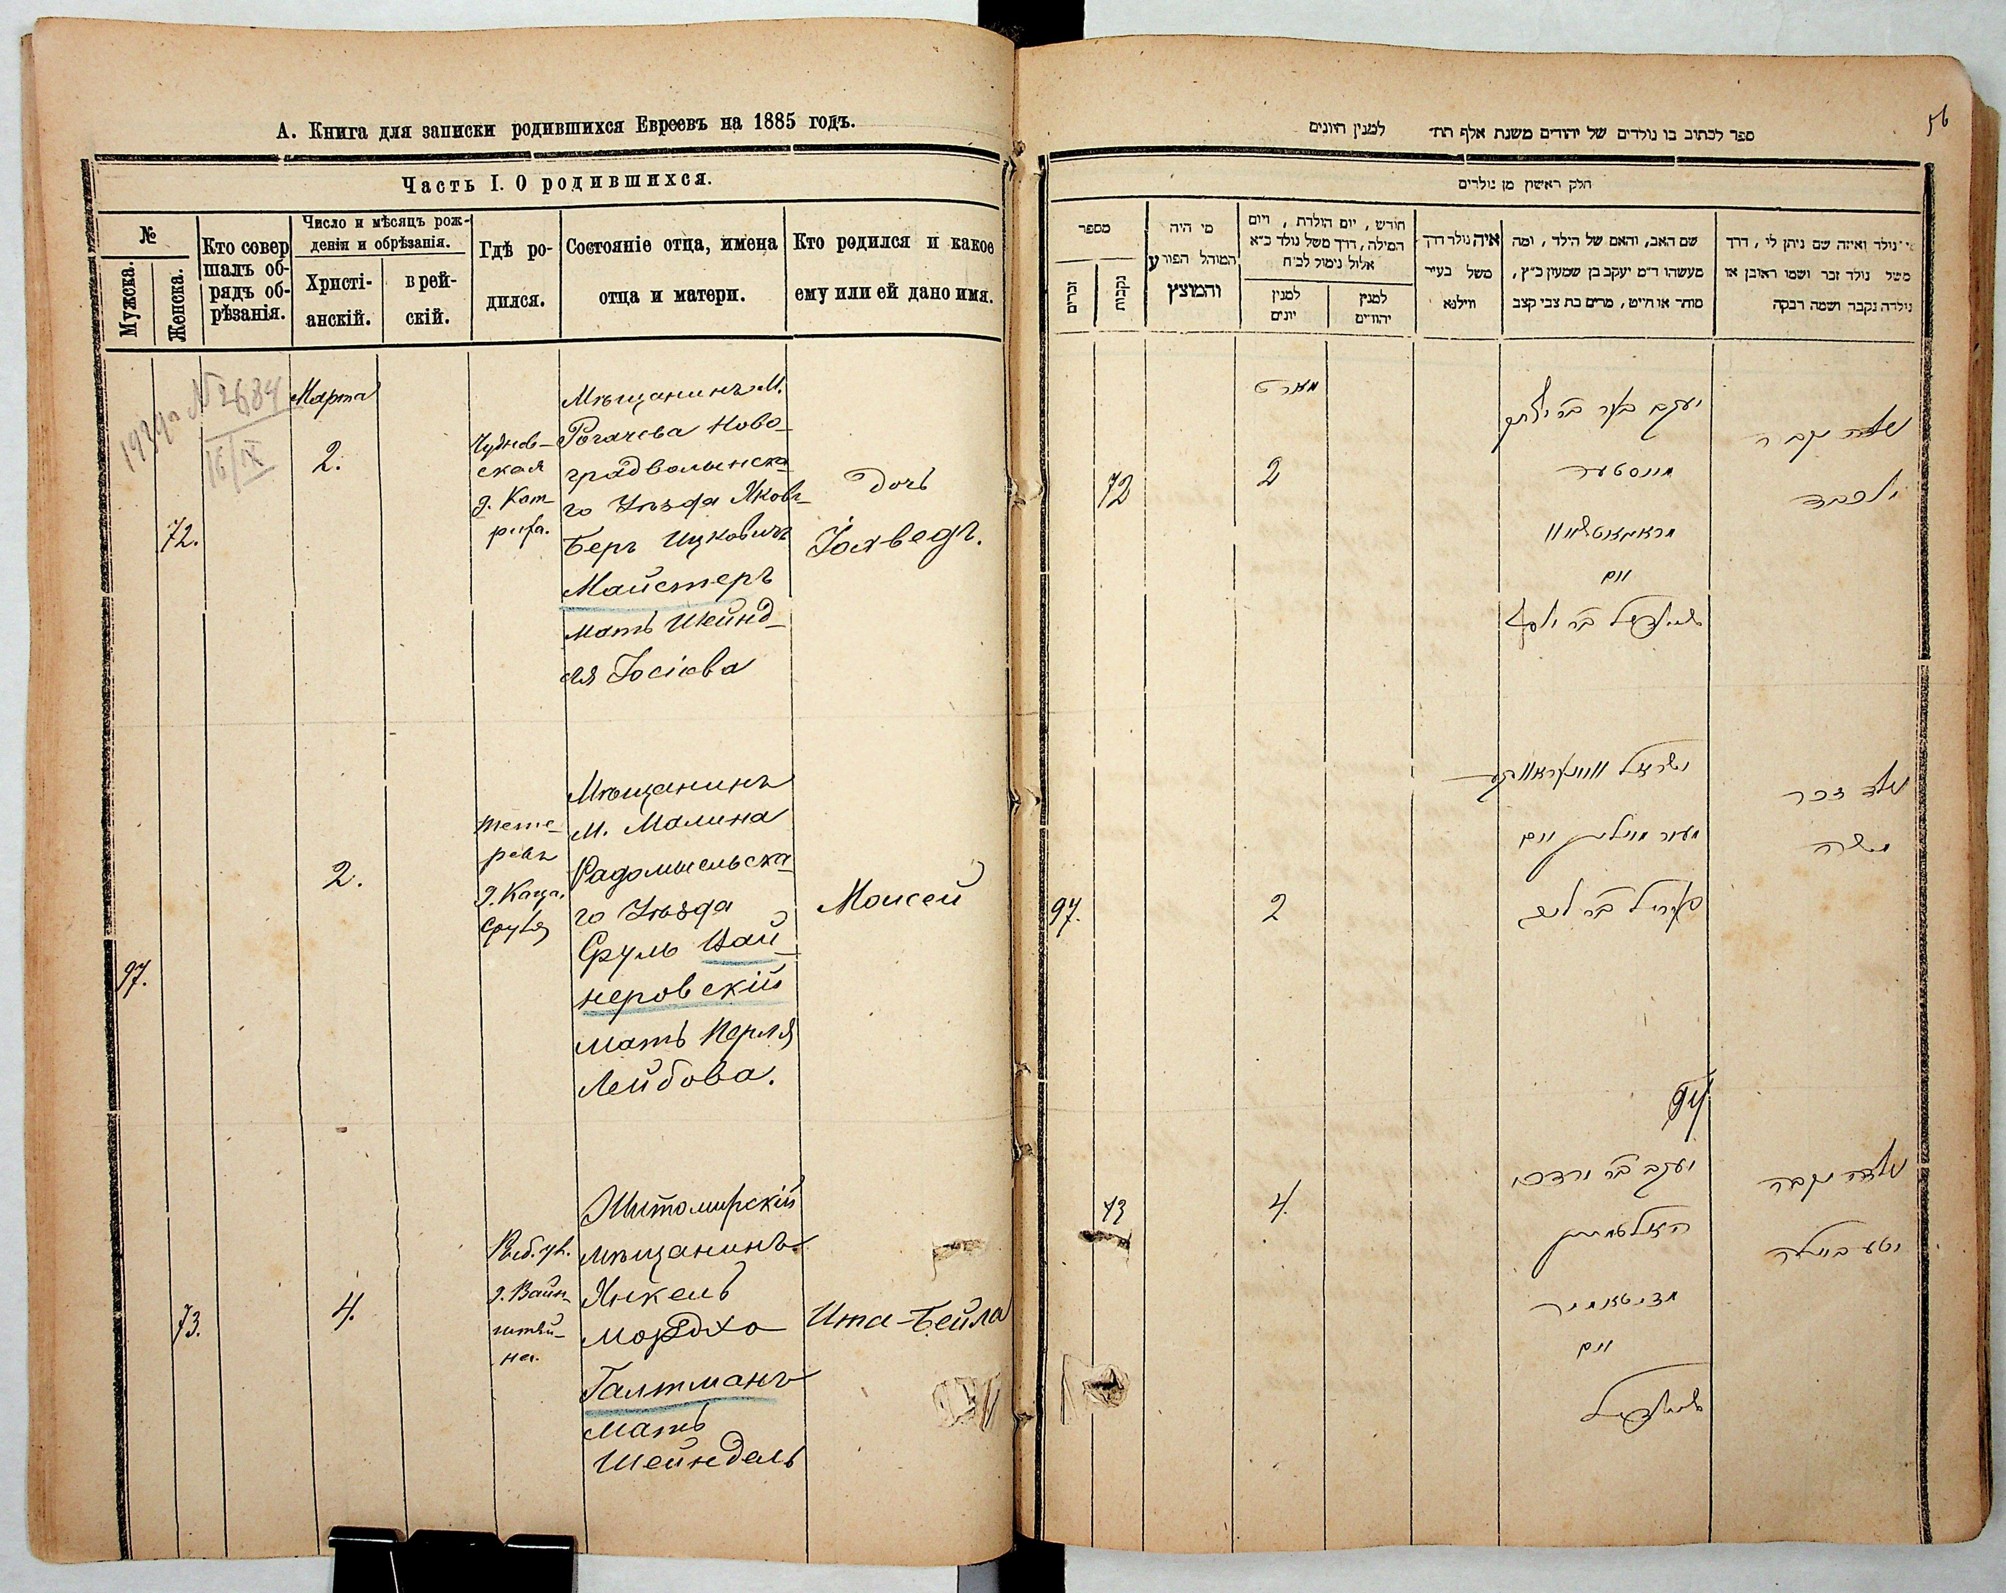 А. Книга для записки родившихся Евреевъ на 1885 годъ.
Часть I. О родившихся.
№
Мужска.
Женска.
Кто совер
шалъ об-
рядъ об-
рѣзанія.
Число и мѣсяцъ рож-
денія и обрѣзанія.
Христі-
анскій.
в рей-
скій.
Гдѣ ро-
дился.
Состояніе отца, имена
отца и матери.
Кто родился и какое
ему или ей дано имя.
№ 2684
16/IX
72.
Марта
2.
Чуднов-
ская
д. Кот-
Мѣщанинъ М.
Рогачева Ново-
градволынска
го Уѣзда Яковъ-
Беръ Ицковичъ
Майстеръ
мать Шейнд-
ля Іосіова
Дочь
Іохведъ.
97.
2.
Тете-
ревъ
Мѣщанинъ
М. Малина
Радомысльска-
го Уѣзда
Сруль Вай-
неровскій
мать Перля
Лейбова.
Моисей
73.
4.
Рыб. ул.
д. Вайн-
штей-
на.
Житомирскій
мѣщанинъ
Янкель
Мордохо
Галтманъ
мать
Шейндель
Ита-Бейла
56
ספר לכתוב בו נולדים של יהודים משנת אלף תת׳ למנין היונים
חלק ראשון מן נולדים
מספר
זכרים
נקבות
מי היה
המוהל הפורע
והמוצץ
חודש, יום הולדת, ויום
המילה, דרך משל נולד כ״א
אלול נימול לב״ח
למנין
יונים
למנין
יהודים
איה נולד דרך
משל בעיר
ווילנא
שם האב, והאם של הילד, ומה
מעשהו ד״מ יעקב בן שמעון כ״ץ,
סוחר או חייט, מרים בת צבי קצב
מי נולד ואיזה שם ניתן לו, דרך
משל נולד זכר ושמו ראובן או
נולדה נקבה ושמה רבקה
72
מארט
2
יעקב בער בר יצחק
מייסטער
ואם
שיינדיל בר יוסף
נולדה נקבה
יוכבד
97.
2
ישראל ווײנעראווסקי
מעיר מאלין ואם
פערל בר לייב
נולד זכר
משה
97
73
4.
יעקב בר מרדכי
האלטמאן
זיטאמיר
ואם
שיינדיל
נולדה נקבה
יטע ביילה